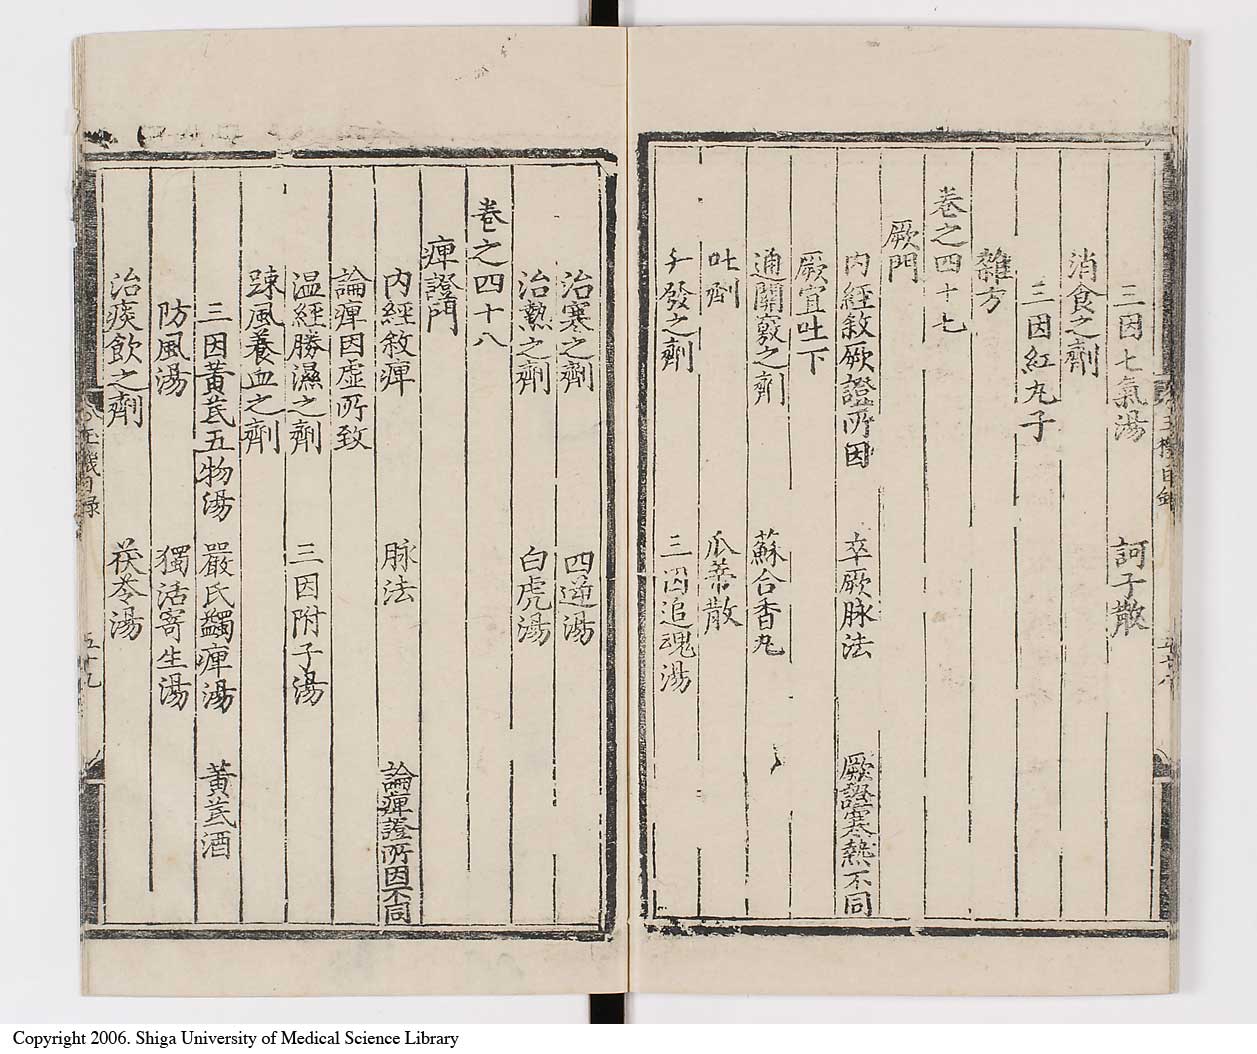 三因七氣湯　訶子散
消食之劑
三因紅丸子
雜方
卷之四十七
厥門
內經敘厥證所因　卒厥脉法　厥證寒熱不同
厥宜吐下
通關竅之劑　蘇合香丸
吐劑　瓜蔕散
發之劑　三因追魂湯
治寒之劑　四逆湯
治熱之劑　白虎湯
卷之四十八
痺證門
內經敘痺　脉法　論痺證所因不同
論痺因虛所致
温經勝濕之劑　三因附子湯
踈風養血之劑
三因黃茋五物湯　嚴氏蠲痺湯　黃茋酒
防風湯　獨活寄生湯
治痰飲之劑　茯苓湯
五十九
Copyright 2006. Shiga University of Medical Science Library